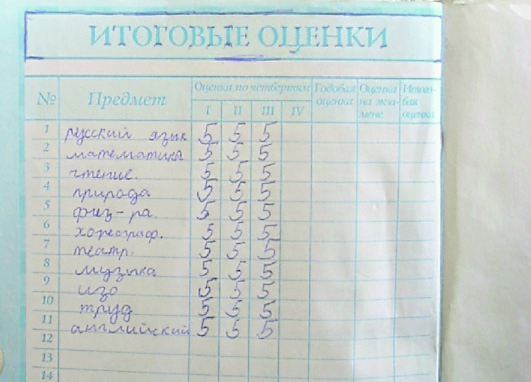 ИТОГОВЫЕ ОЦЕНКИ
№ Предмет Оценки по четвертям Годовая оценка Оценка на экзамене Итоговая оценка
I II III IV
1 русский язык 5 5 5
2 математика 5 5 5
3 чтение. 5 5 5
4 природа 5 5 5
5 физ-ра. 5 5 5
6 хореограф. 5 5 5
7 театр. 5 5 5
8 музыка 5 5 5
9 изо 5 5 5
10 труд 5 5 5
11 английский 5 5 5
12
13
14